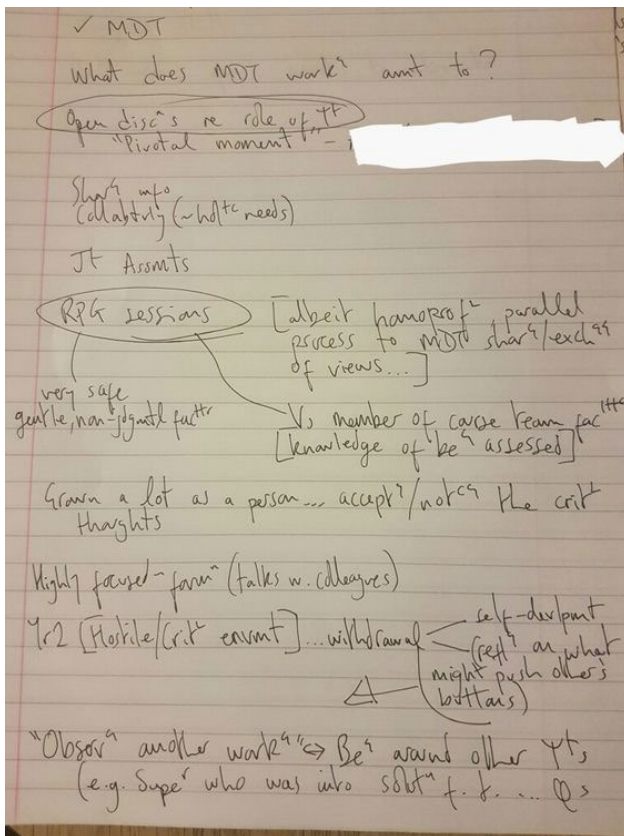 ✓ MDT
What does MDT workᵍ amt to?
Open discⁿs re role of Ψt
"Pivotal moment" –
Sharᵍ info
Collabtvly (~holtc needs)
Jt Assmts
RPG sessions
[albeit homoprofᴸ, parallel
process to MDT sharᵍ/exchᵍᵍ
of views...]
very safe
gentle, non-jdgmtl facttr
Vs member of course team facttr
[knowledge of beᵍ assessed]
Grown a lot as a person... acceptᵍ/notcᵍ the critᴸ
thoughts
Highly focused – formⁿ (talks w. colleagues)
Yr2 [Hostile/Critᴸ envmt]...withdrawal
self-devlpmt
(reflⁿ on what
might push other's
buttons)
"Observᵍ another workᵍ" ↔ Beᵍ around other Ψts
(e.g. Supeʳ who was into solutⁿ f. t. ... Qs